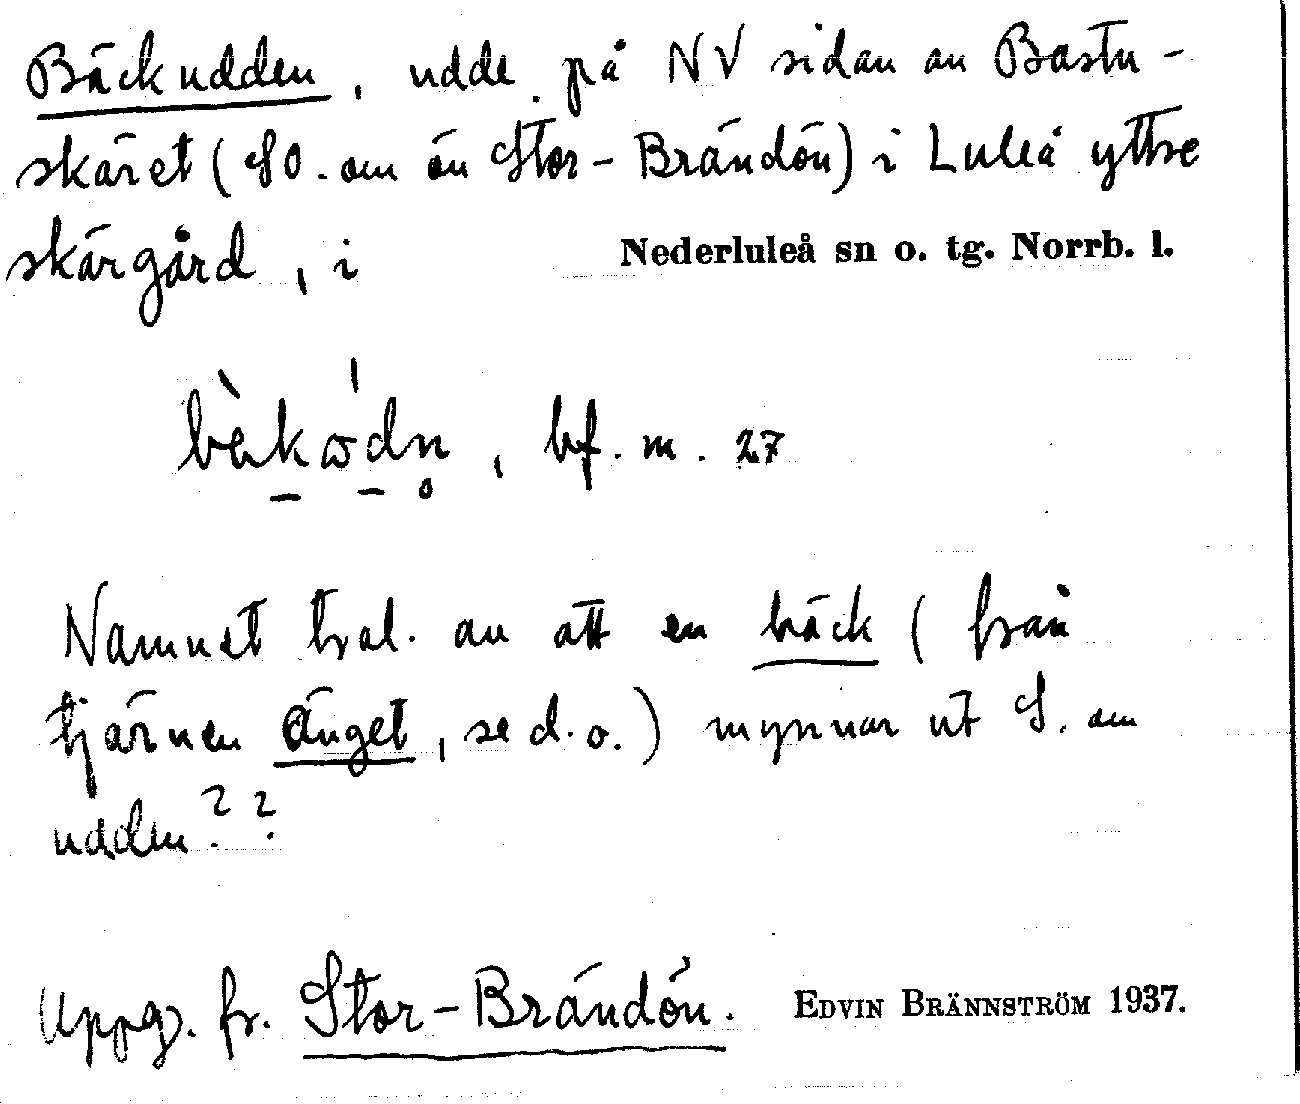 Bäckudden, udde på NV sidan av Bastu-
skäret (SO. om ön Stor-Brändön) i Luleå yttre
skärgård, i Nederluleå sn o. tg. Norrb. l.
bf. m. 27
Namnet trol. av att en bäck (från
tjärnen Änget, se d. o.) mynnar ut S. om
udden??
Uppg. fr. Stor-Brändön. EDVIN BRÄNNSTRÖM 1937.